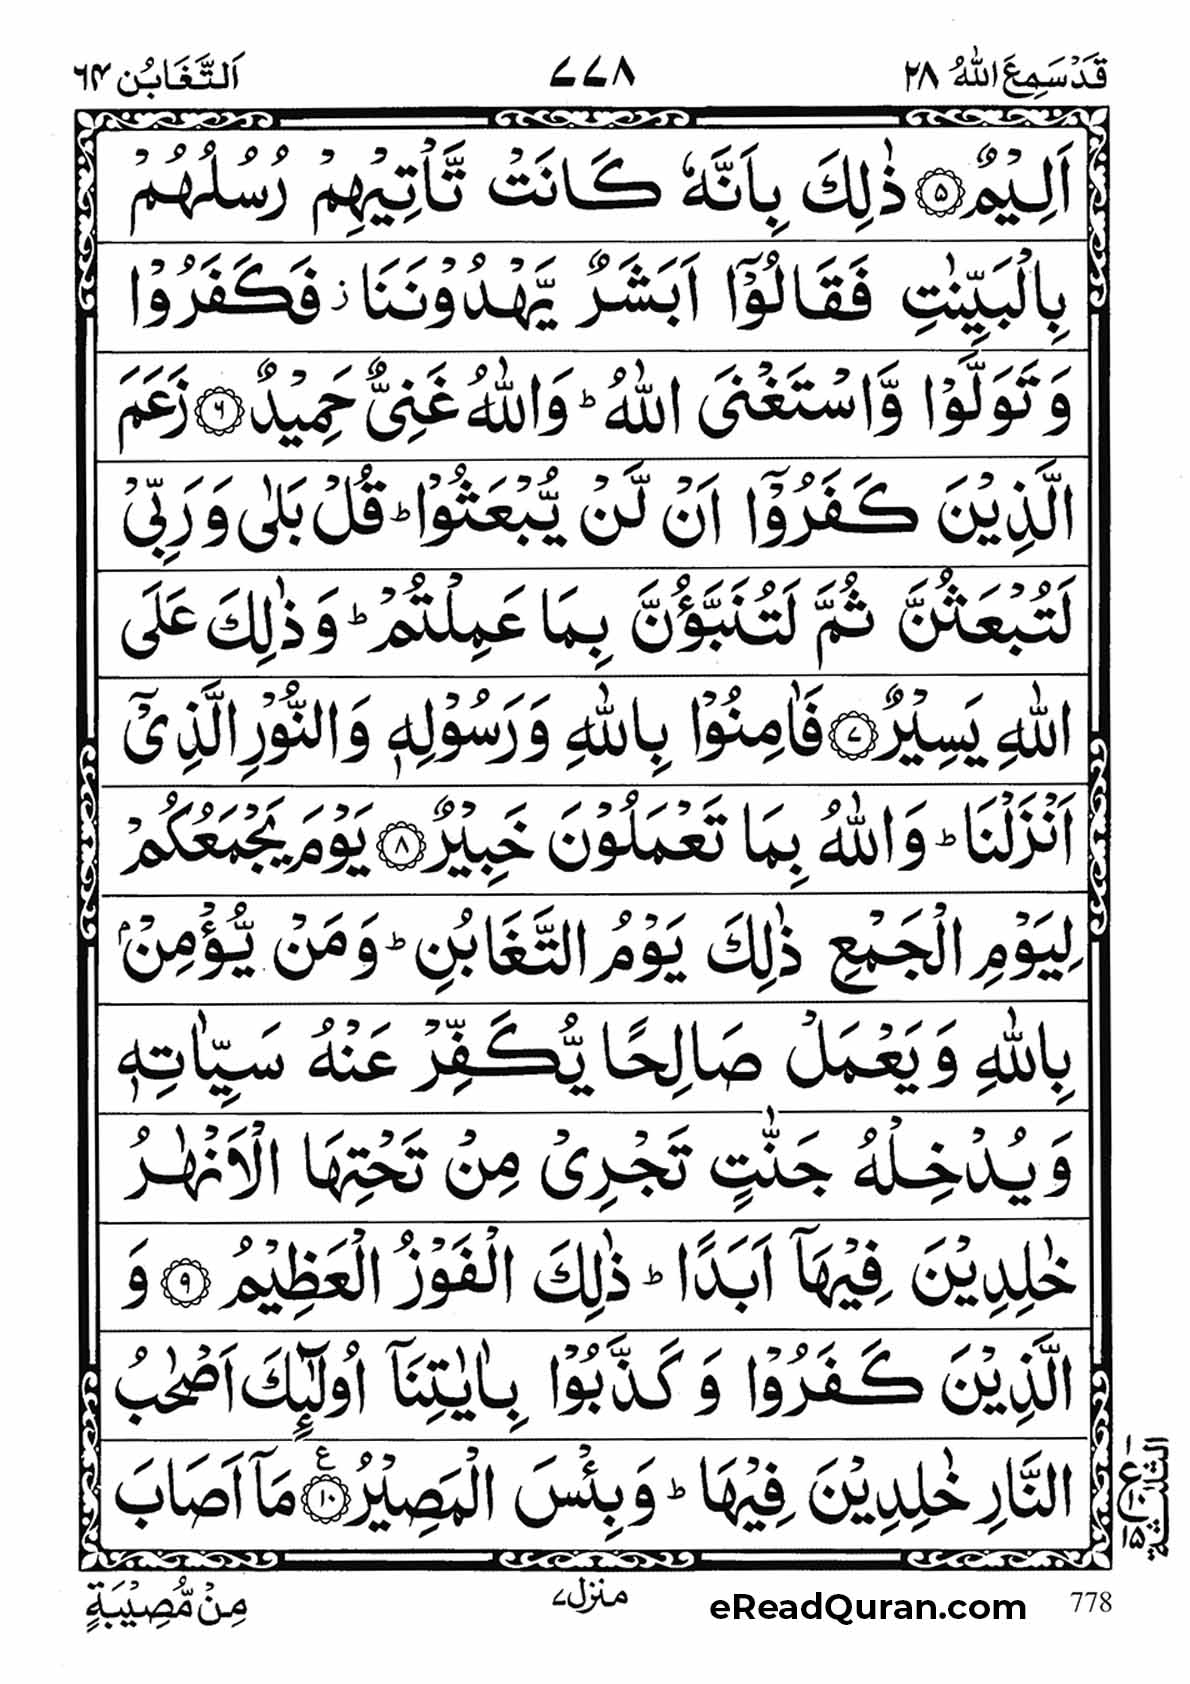 قَدْ سَمِعَ اللّٰهُ ٢٨
٧٧٨
اَلتَّغَابُن ٦٤
اَلِيْمٌ ۝۵ ذٰلِكَ بِاَنَّهٗ كَانَتْ تَّاْتِيْهِمْ رُسُلُهُمْ
بِالْبَيِّنٰتِ فَقَالُوْۤا اَبَشَرٌ يَّهْدُوْنَنَا ز فَكَفَرُوْا
وَ تَوَلَّوْا وَّاسْتَغْنَى اللّٰهُ ؕ وَاللّٰهُ غَنِىٌّ حَمِيْدٌ ۝۶ زَعَمَ
الَّذِيْنَ كَفَرُوْۤا اَنْ لَّنْ يُّبْعَثُوْا ؕ قُلْ بَلٰى وَ رَبِّىْ
لَتُبْعَثُنَّ ثُمَّ لَتُنَبَّؤُنَّ بِمَا عَمِلْتُمْ ؕ وَ ذٰلِكَ عَلَى
اللّٰهِ يَسِيْرٌ ۝۷ فَاٰمِنُوْا بِاللّٰهِ وَ رَسُوْلِهٖ وَ النُّوْرِ الَّذِىْۤ
اَنْزَلْنَا ؕ وَ اللّٰهُ بِمَا تَعْمَلُوْنَ خَبِيْرٌ ۝۸ يَوْمَ يَجْمَعُكُمْ
لِيَوْمِ الْجَمْعِ ذٰلِكَ يَوْمُ التَّغَابُنِ ؕ وَ مَنْ يُّؤْمِنْۢ
بِاللّٰهِ وَ يَعْمَلْ صَالِحًا يُّكَفِّرْ عَنْهُ سَيِّاٰتِهٖ
وَ يُدْخِلْهُ جَنّٰتٍ تَجْرِىْ مِنْ تَحْتِهَا الْاَنْهٰرُ
خٰلِدِيْنَ فِيْهَاۤ اَبَدًا ؕ ذٰلِكَ الْفَوْزُ الْعَظِيْمُ ۝۹ وَ
الَّذِيْنَ كَفَرُوْا وَ كَذَّبُوْا بِاٰيٰتِنَاۤ اُولٰٓئِكَ اَصْحٰبُ
النَّارِ خٰلِدِيْنَ فِيْهَا ؕ وَ بِئْسَ الْمَصِيْرُ ۝۱۰ ع مَاۤ اَصَابَ
الثلثة
ع ١٠ ١٥
مِنْ مُّصِيْبَةٍ
منزل ٧
eReadQuran.com
778